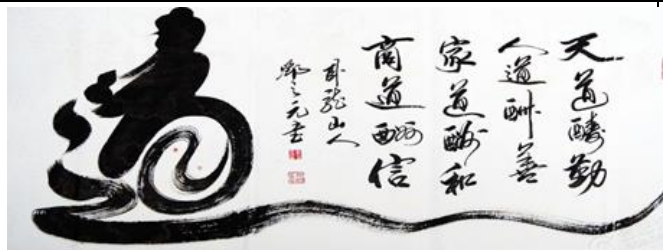 天道酬勤
人道酬善
家道酬和
商道酬信
卧龍山人
道